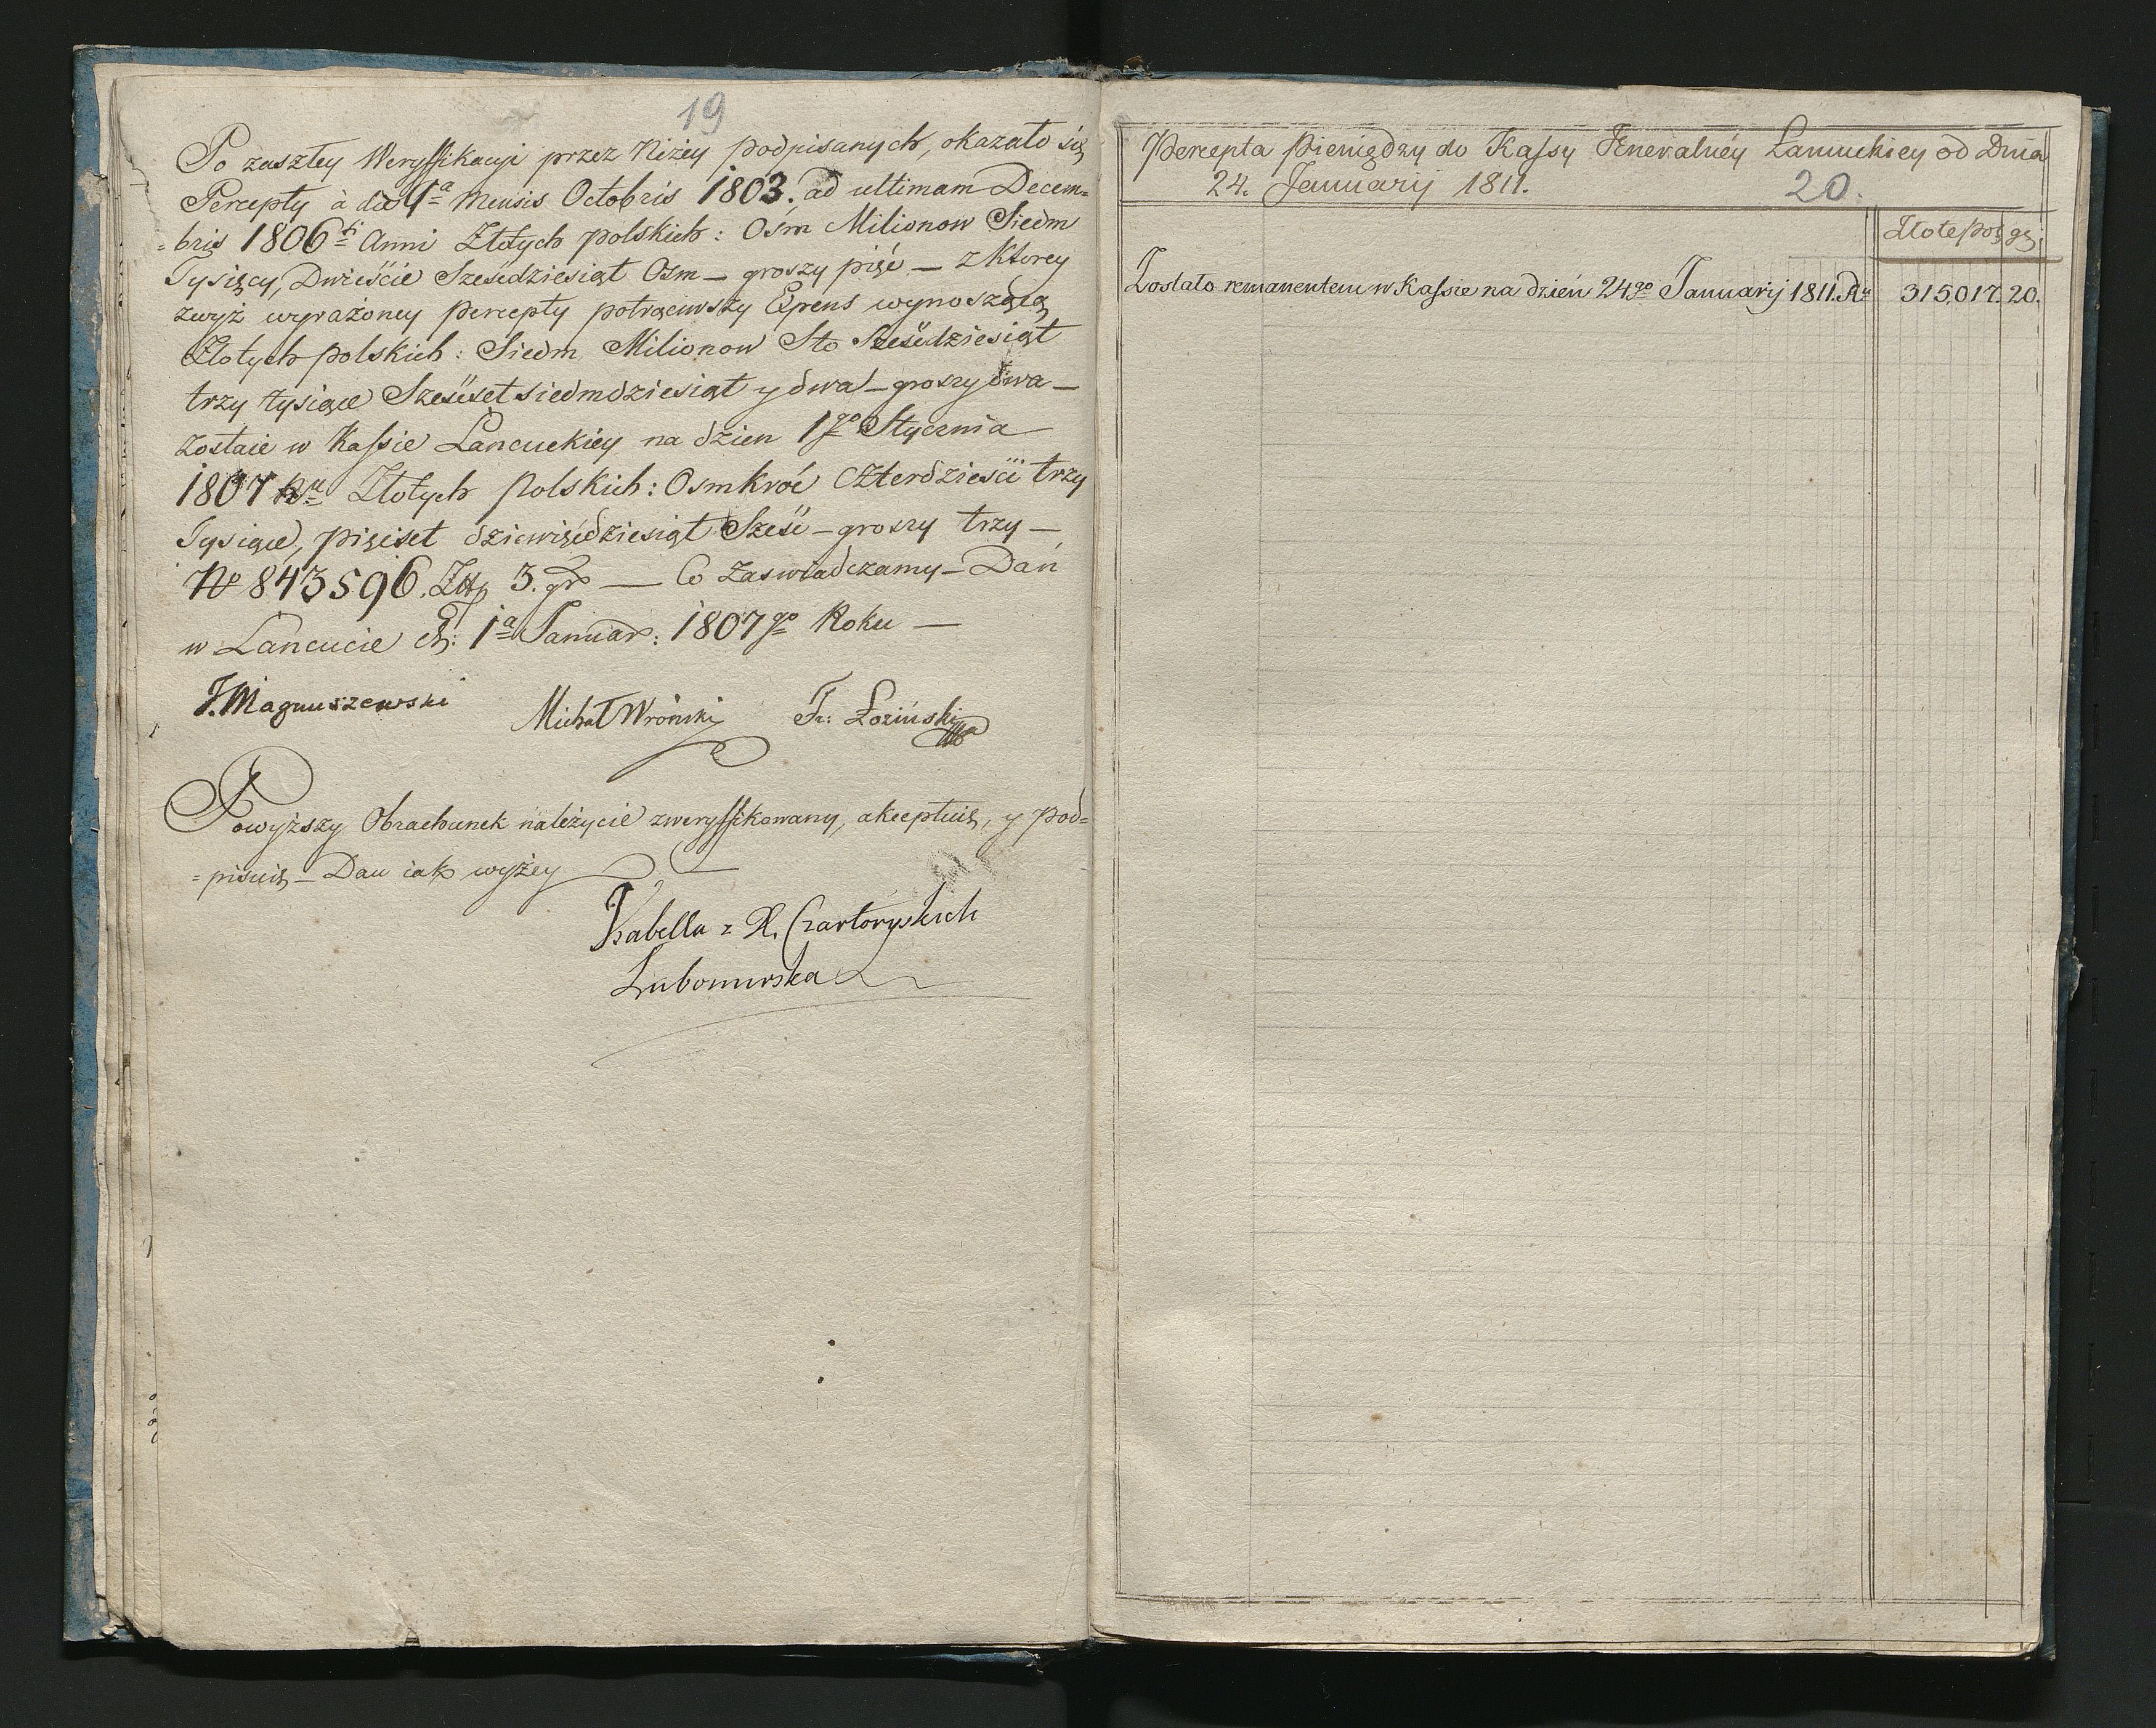 19
Po zaszłey Weryffikacyi przez Niżey podpisanych, okazało się
Percepty à die 1<sup>a</sup> Mensis Octobris 1803. ad ultimam Decem=
=bris 1806<sup>ti</sup> Anni Złotych polskich: Osm Milionow Siedm
Tysięcy, Dwieście Sześćdziesiąt Osm — groszy pięć — z Ktorey
zwyż wyrażoney percepty potrąciwszy Expens wynoszącą
Złotych polskich: Siedm Milionow Sto Sześćdziesiąt
trzy tysiące Sześćset siedmdziesiąt y dwa — groszy dwa —
zostaie w Kassie Lancuckiey na dzien 1<sup>go</sup> Stycznia
1807 Ru Złotych polskich: Osmkroć czterdzieści trzy
Tysiące, pięćset dziewięćdziesiąt Sześć — groszy trzy —
No 843596. Złłp 3. gr — Co zaswiadczamy — Dań
w Lancucie d: 1<sup>a</sup> Januar: 1807<sup>go</sup> Roku —
J. Magnuszewski Michał Wroński Fr: Łoziński
Powyższy Obrachunek należycie zweryffikowany, akceptuię, y pod=
=pisuię — Dan iako wyżey
Izabella z X. Czartoryskich
Lubomirska
Percepta Pieniędzy do Kassy Generalney Lancuckiey od Dnia
24. Januarij 1811. 20.
Złote pol gr.
Zostało remanentem w Kassie na dzień 24<sup>go</sup> Januarij 1811. Ru 315,017. 20.